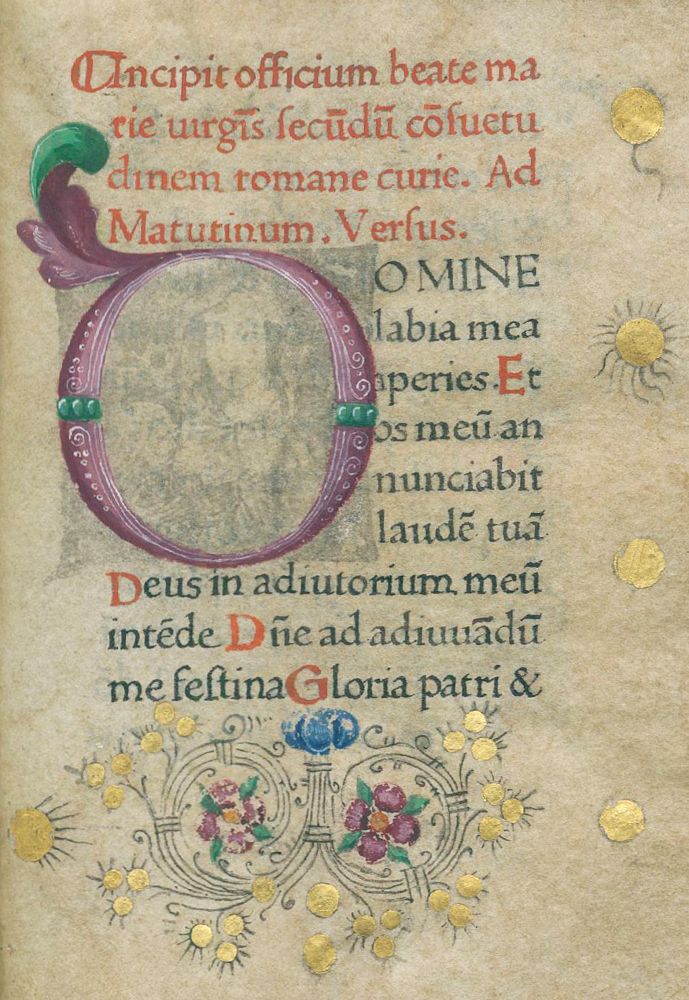 Incipit officium beate ma
rie uirgīs ſecūdū cōſuetu
dinem romane curie. Ad
Matutinum. Verſus.
DOMINE
labia mea
aperies. Et
os meū an
nunciabit
laudē tuā
Deus in adiutorium meū
intēde Dñe ad adiuuādū
me feſtina Gloria patri &